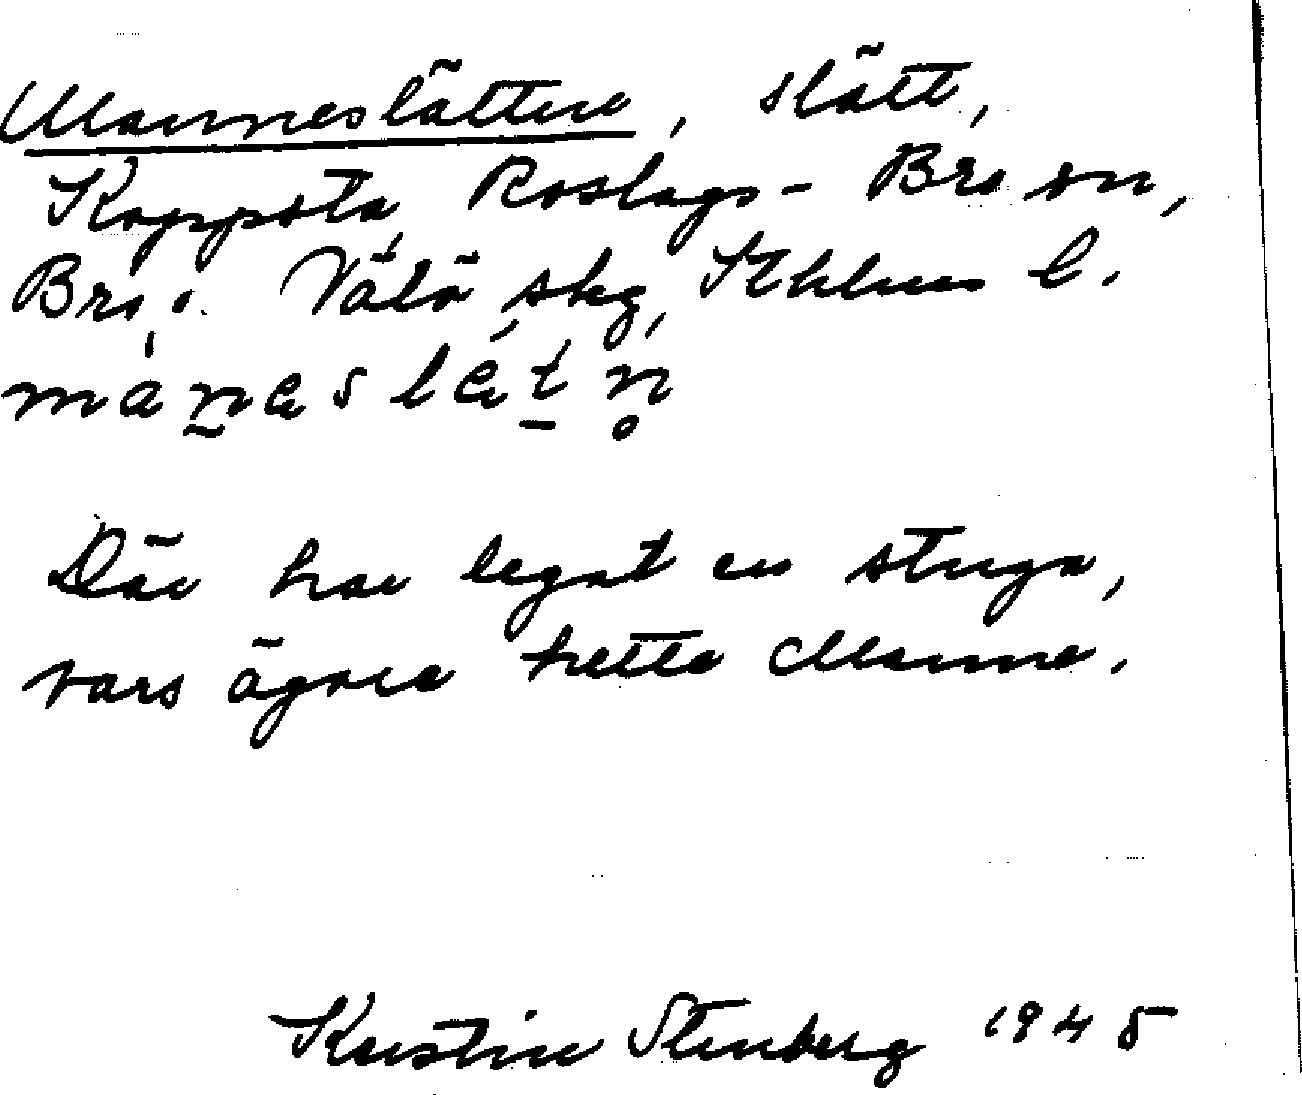 Manneslätten, slätt,
Koppsta, Roslags-Bro sn,
Bro o. Vätö skg, Sthlms l.
manaslätn
Där har legat en stuga,
vars ägare hette Manne.
Kerstin Stenberg 1945